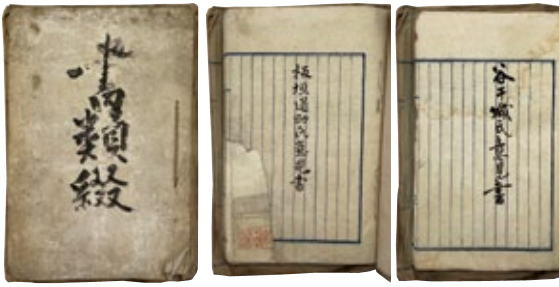 書類綴
板垣退助氏意見書
谷干城氏意見書